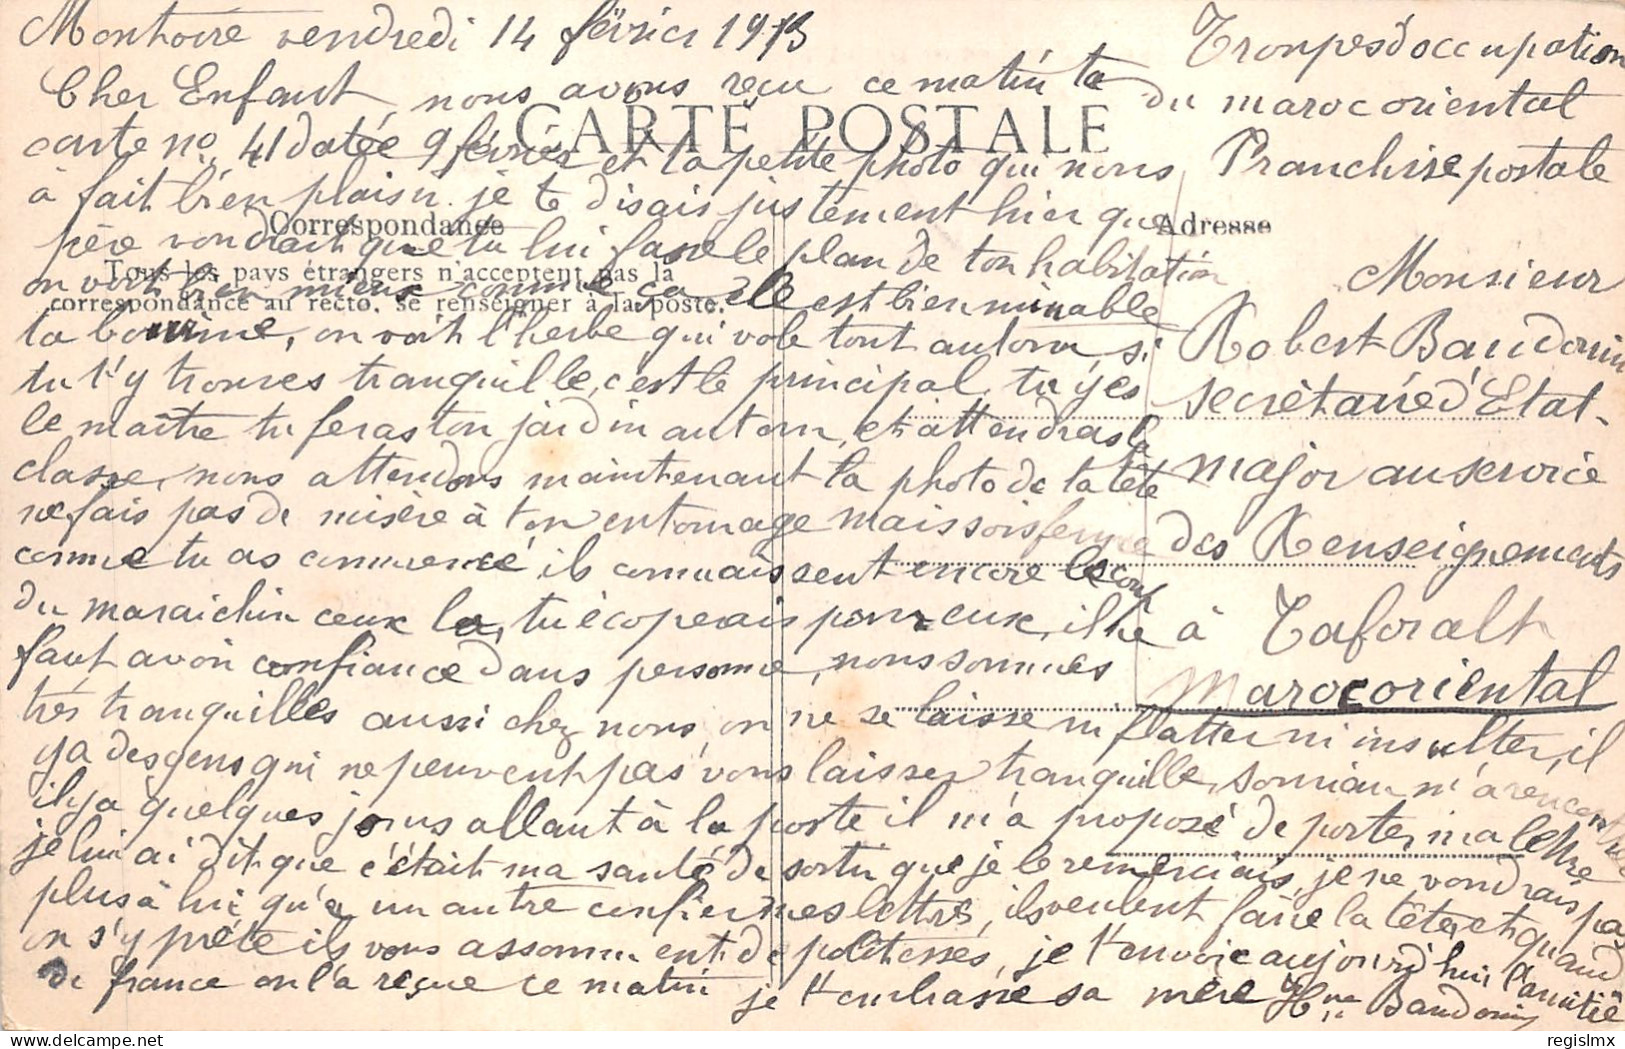 Montoire vendredi 14 février 1913
Cher Enfant, nous avons reçu ce matin ta
carte no 41 datée 9 février et la petite photo qui nous
à fait bien plaisir je te disais justement hier que
père voudrait que tu lui fasse le plan de ton habitation
on voit bien mieux comme ça elle est bien minable
ta cuisine, on voit l'herbe qui vole tout autour, si
tu t'y trouves tranquille, c'est le principal, tu y es
le maître tu feras ton jardin autour, et attendras la
classe, nous attendons maintenant la photo de ta tête
ne fais pas de misère à ton entourage mais sois ferme
comme tu as commencé, ils connaissent encore le coup
du maraichin ceux la, tu écoperais pour eux, il ne
faut avoir confiance dans personne, nous sommes
très tranquilles aussi chez nous, on ne se laisse ni flatter ni insulter, il
y a des gens qui ne peuvent pas vous laisser tranquille, m'a rencontrée
il y a quelques jours allant à la poste il m'a proposé de porter ma lettre
je lui ai dit que c'était ma santé de sortir que je le remerciais, je ne voudrais pas
plus à lui qu'a un autre confier mes lettres, ils veulent faire la tête, et quand
on s'y prête ils vous assomment de politesses, je t'envoie aujourd'hui l'amitié
de france on l'a reçue ce matin je t'embrasse sa mère Baudouin
CARTE POSTALE
Correspondance
Tous les pays étrangers n'acceptent pas la
correspondance au recto, se renseigner à la poste.
Adresse
Troupes d'occupation
du maroc oriental
Franchise postale
Monsieur
Robert Baudouin
secrétaire d'Etat-
major au service
des Renseignements
à Taforalt
Maroc oriental
regislmx
delcampe.net